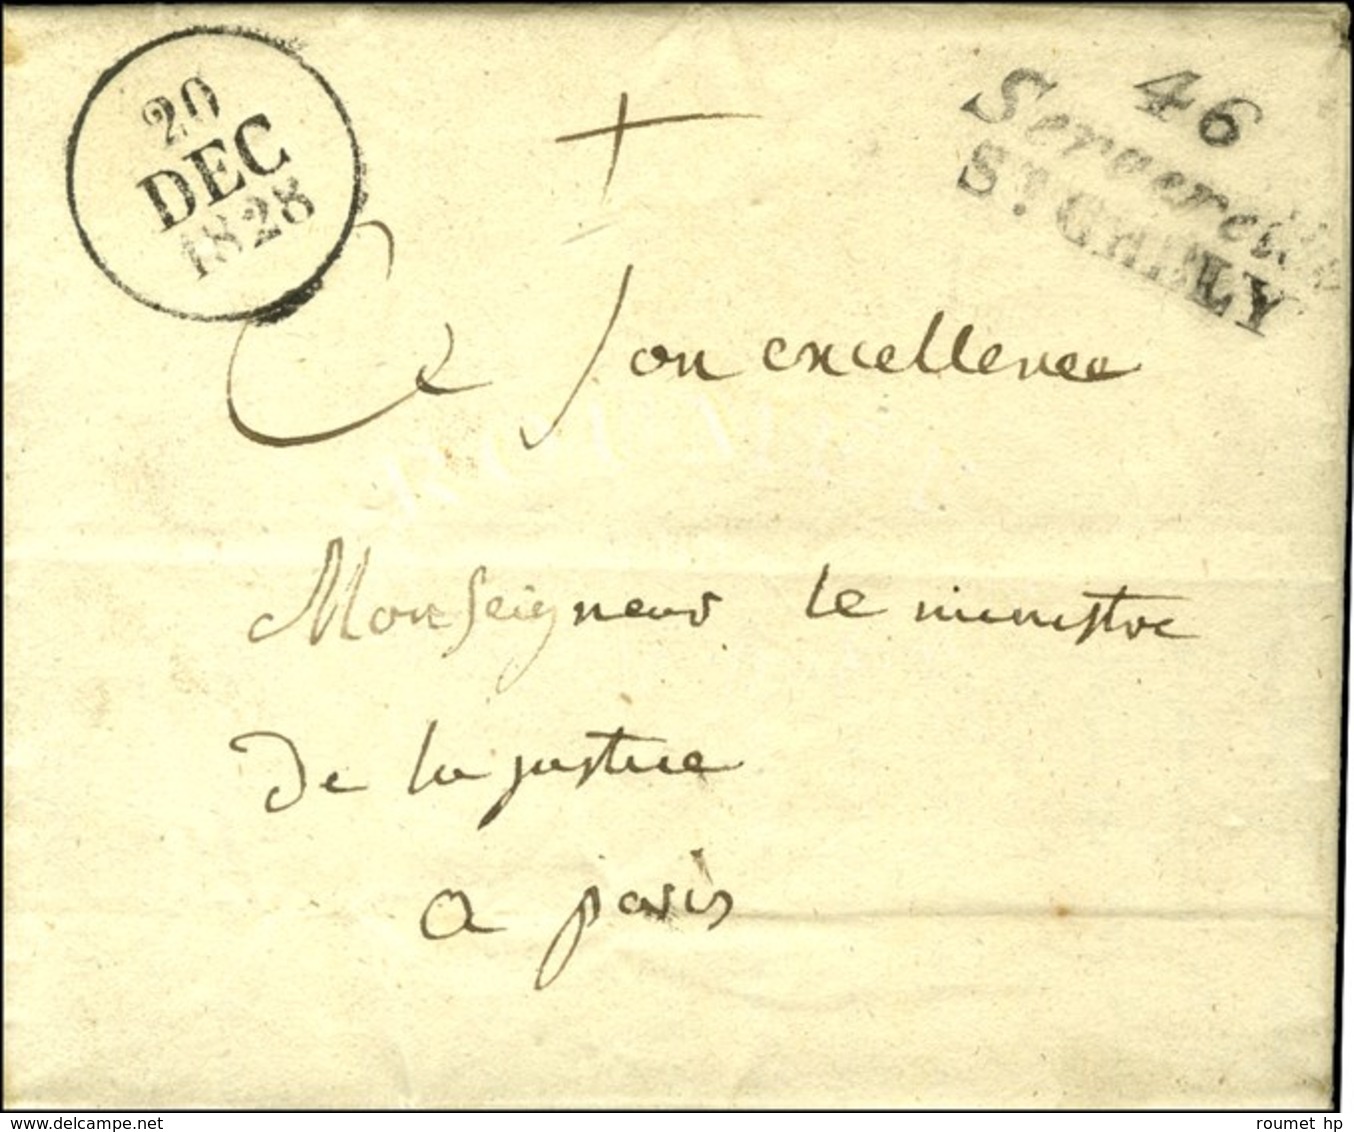 20
DEC
1828
46
St. CHELY
A Son excellence
Monseigneur le ministre
De la justice
a paris
ROUMET
delcampe.net
roumet hp